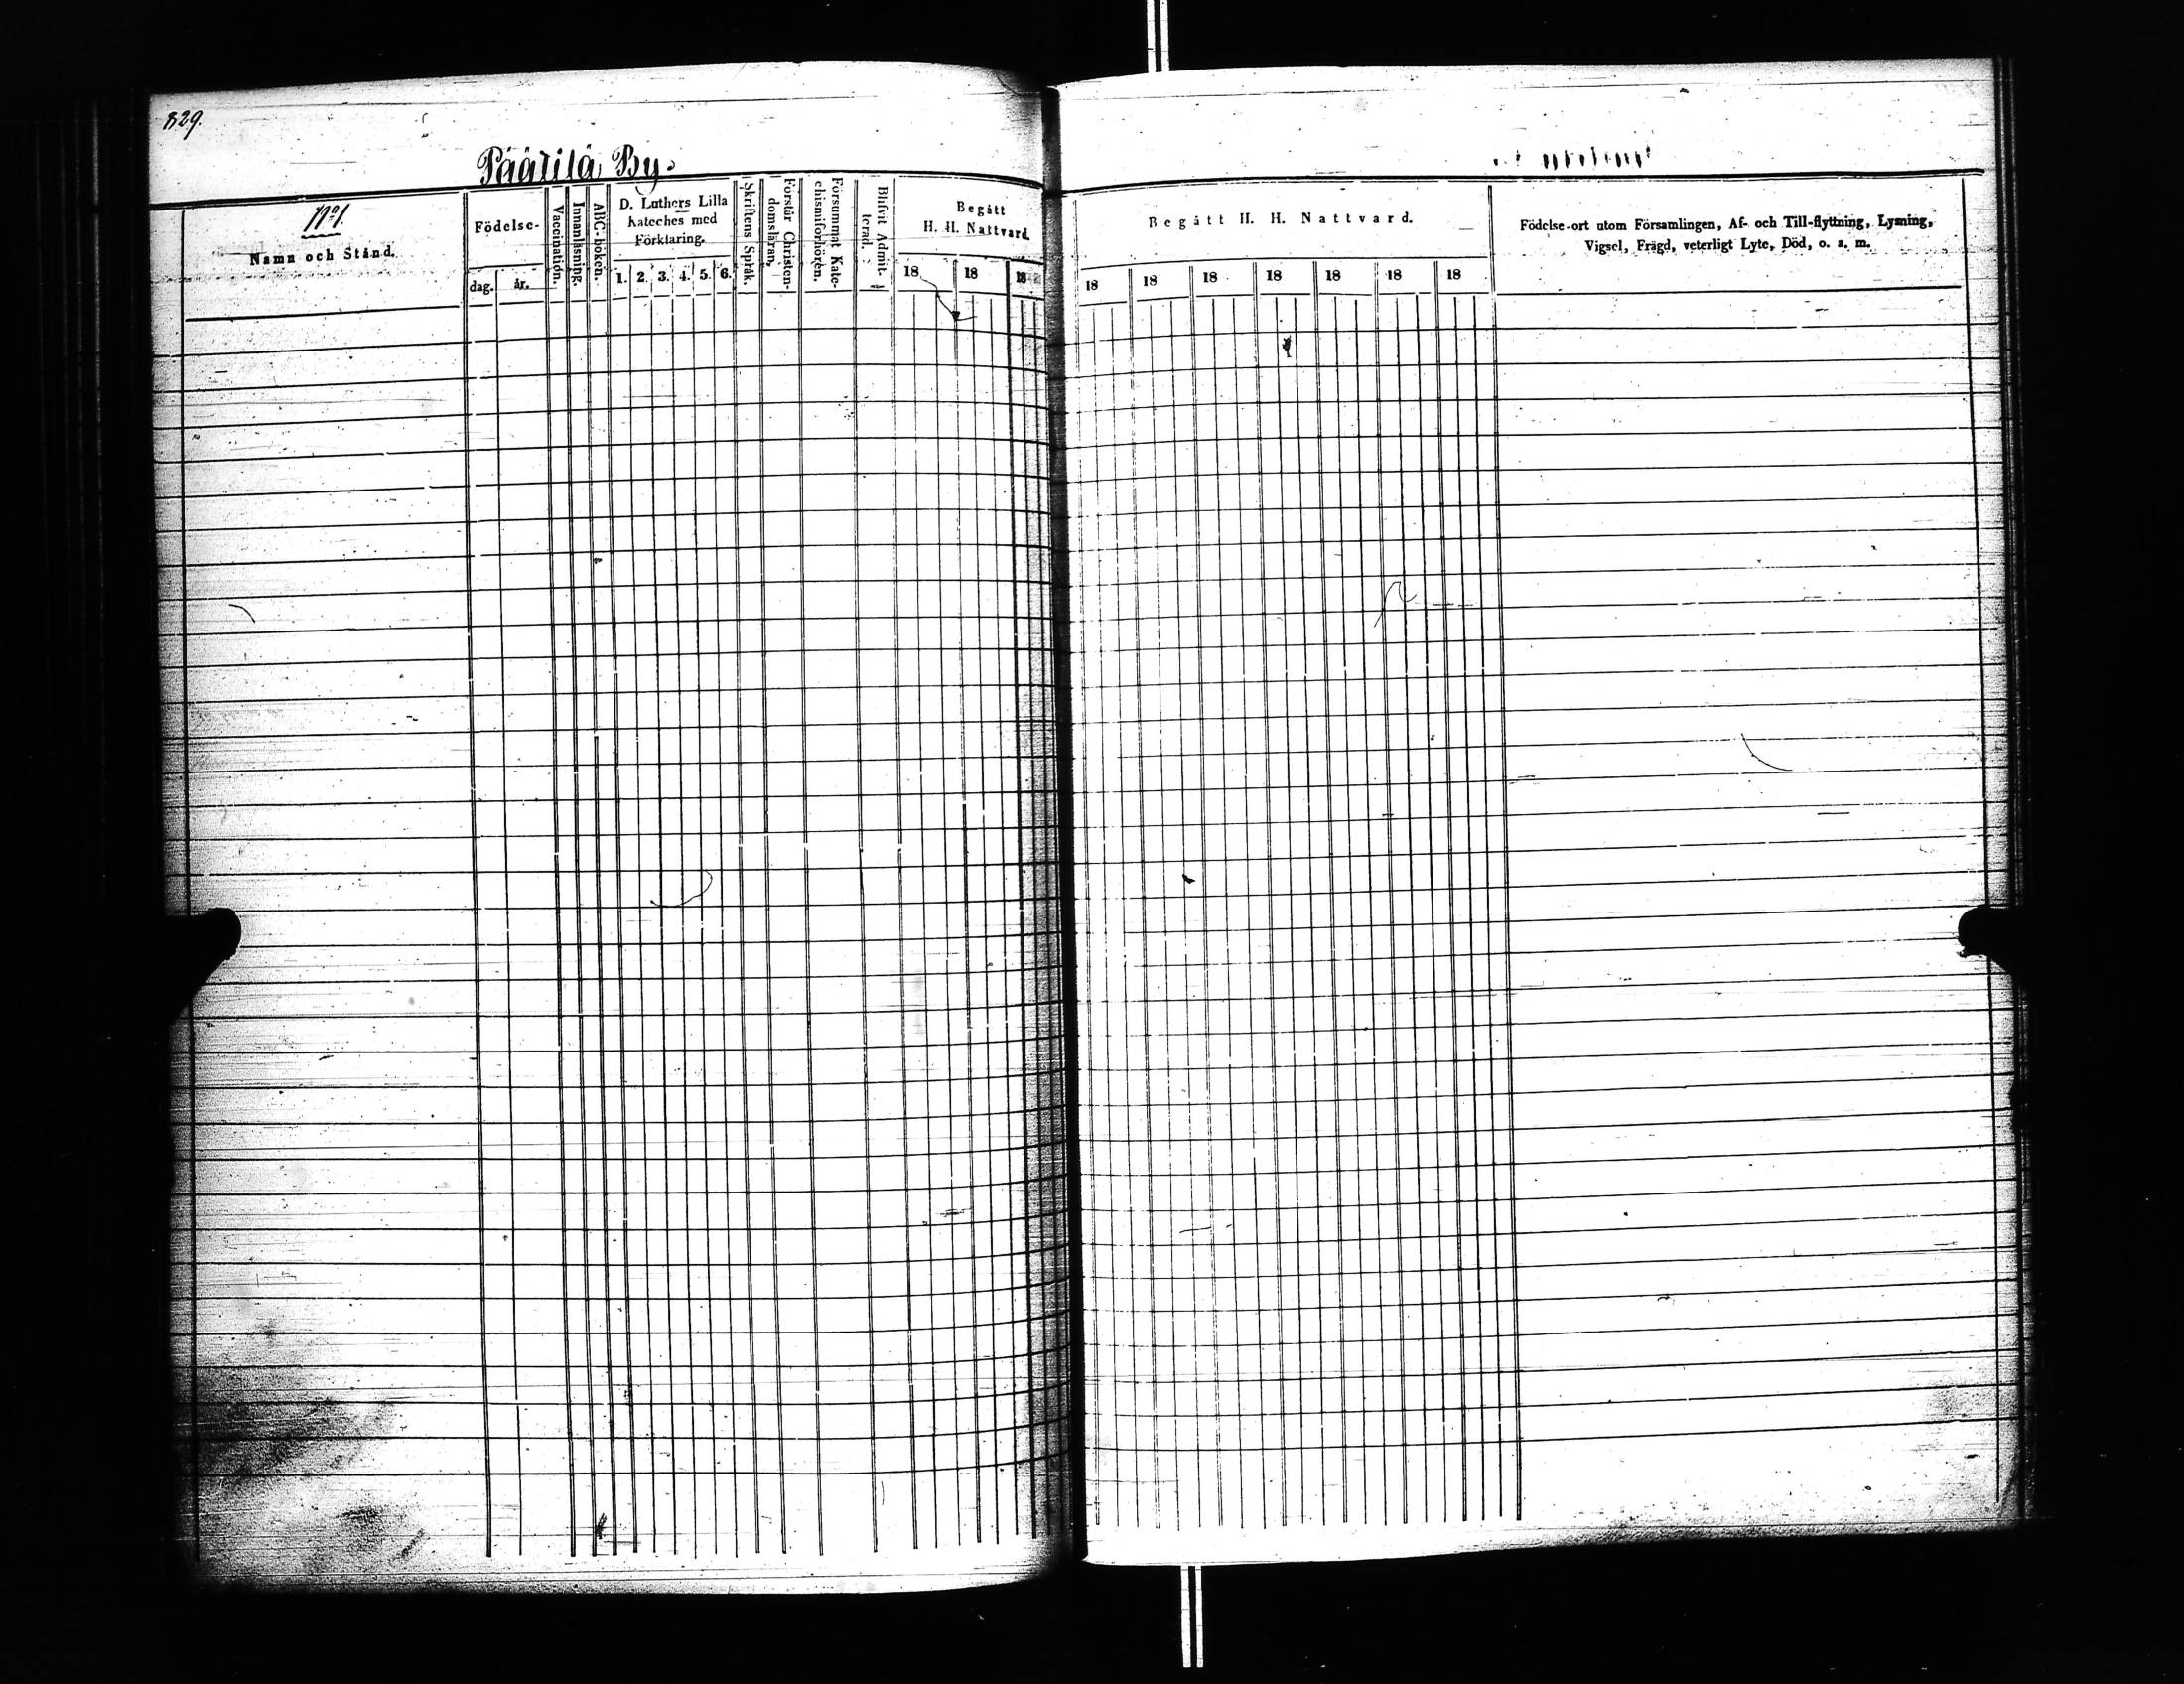 829.
Päärilä By.
N:o 1.
Namn och Stånd.
Födelse-
dag. år.
Vaccination.
Innanläsning.
ABC-boken.
D. Luthers Lilla
Kateches med
Förklaring.
1. 2. 3. 4. 5. 6.
Skriftens Språk.
Förstår Christen-
domsläran.
Försummat Kate-
chismiförhören.
Blifvit Admit-
terad.
Begått
H. H. Nattvard.
18 18 18
Begått H. H. Nattvard.
18 18 18 18 18 18 18
Födelse-ort utom Församlingen, Af- och Till-flyttning, Lysning,
Vigsel, Frägd, veterligt Lyte, Död, o. s. m.